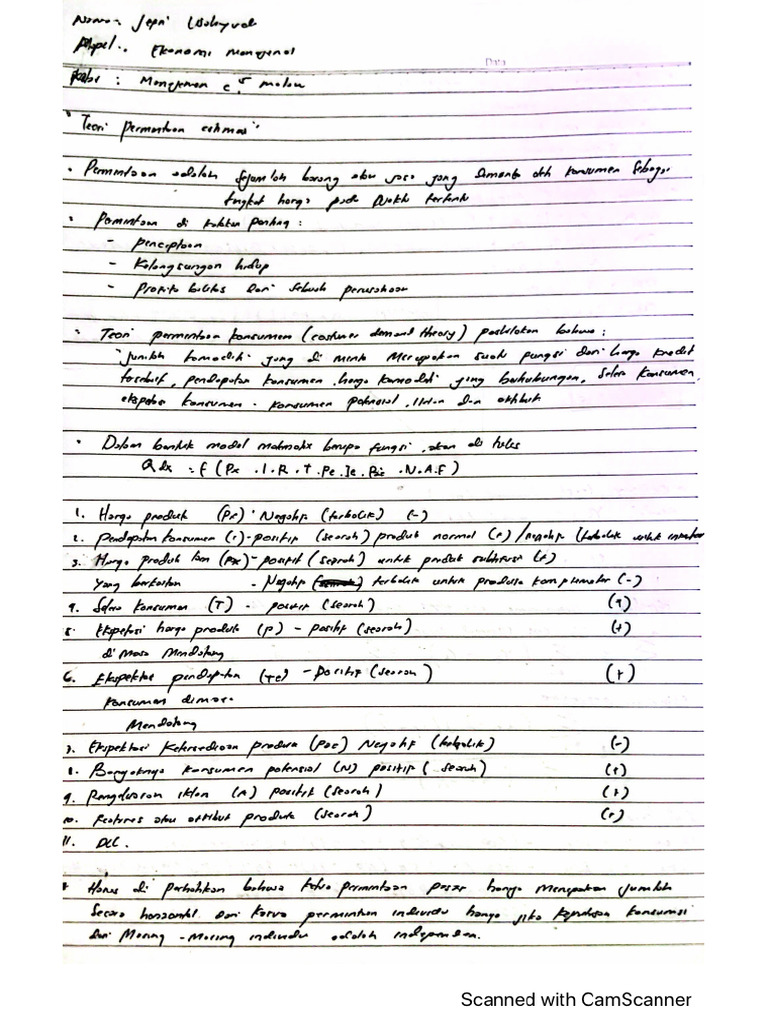 Nama: Jepri Wahyudi
Mapel: Ekonomi Manajerial
Kelas : Manajemen C5 malam
Data
"Teori Permintaan estimasi"
• Permintaan adalah sejumlah barang atau jasa yang diminta oleh konsumen sebagai
tingkat harga pada waktu tertentu
• Permintaan di katakan penting :
- penciptaan
- Kelangsungan hidup
- Profitabilitas dari sebuah perusahaan
• Teori permintaan konsumen (costumer demand theory) postulatkan bahwa :
"jumlah komoditi yang di minta merupakan suatu fungsi dari harga
tersebut, pendapatan konsumen, harga komoditi yang berhubungan, selera konsumen,
ekspetasi konsumen. konsumen potensial, iklan dan atribut
• Dalam bentuk model matmatix berupa fungsi, akan di tulis
Q dx = f (Px . I . R . T . Pe . Ie . . N . A . F)
1. Harga produk (Px) · Negatif (terbalik) (-)
2. Pendapatan konsumen (I) - positif (searah) produk normal (+) / negatif (terbalik untuk
3. Harga produk lain (Px) - positif (searah) untuk produk subtitusi (+)
yang berkaitan - Negatif terbalik untuk produk komplimenter (-)
4. Selera konsumen (T) - positif (searah) (+)
5. Ekspetasi harga produk (P) - positif (searah) (+)
di masa Mendatang
6. Ekspektasi pendapatan (Te) - positif (searah) (+)
konsumen dimasa
Mendatang
7. Ekspektasi Ketersediaan produk Negatif (terbalik) (-)
8. Banyaknya konsumen potensial (N) positif ( searah) (+)
9. Pengeluaran iklan (A) positif (searah) (+)
10. Features atau atribut produk (searah) (+)
11. DLL.
* Harus di perhatikan bahwa kurva permintaan pasar hanya merupakan jumlah
secara horizontal dari kurva permintaan individu hanya jika keputusan konsumsi
dari Masing - Masing individu adalah independen.
Scanned with CamScanner